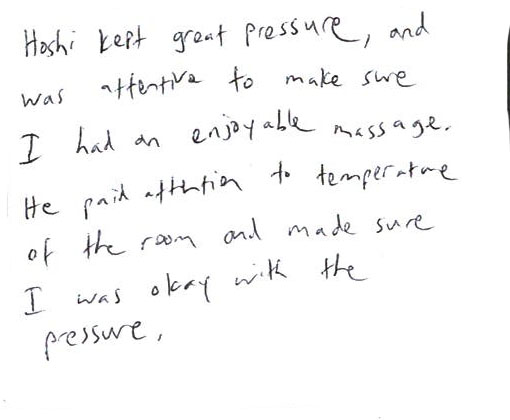 Hoshi kept great pressure, and
was attentive to make sure
I had an enjoyable massage.
He paid attention to temperature
of the room and made sure
I was okay with the
pressure.